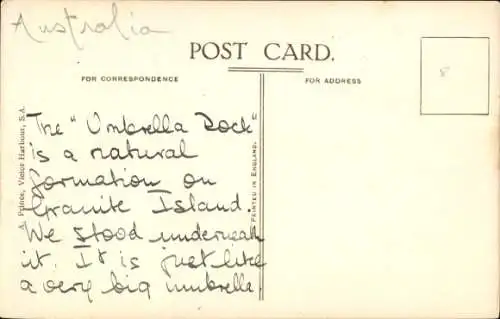 Australia
POST CARD.
FOR CORRESPONDENCE
FOR ADDRESS
8
A. Prince, Victor Harbour, S.A.
The "Umbrella Rock"
is a natural
formation on
Granite Island.
We stood underneath
it. It is just like
a very big umbrella.
PRINTED IN ENGLAND.